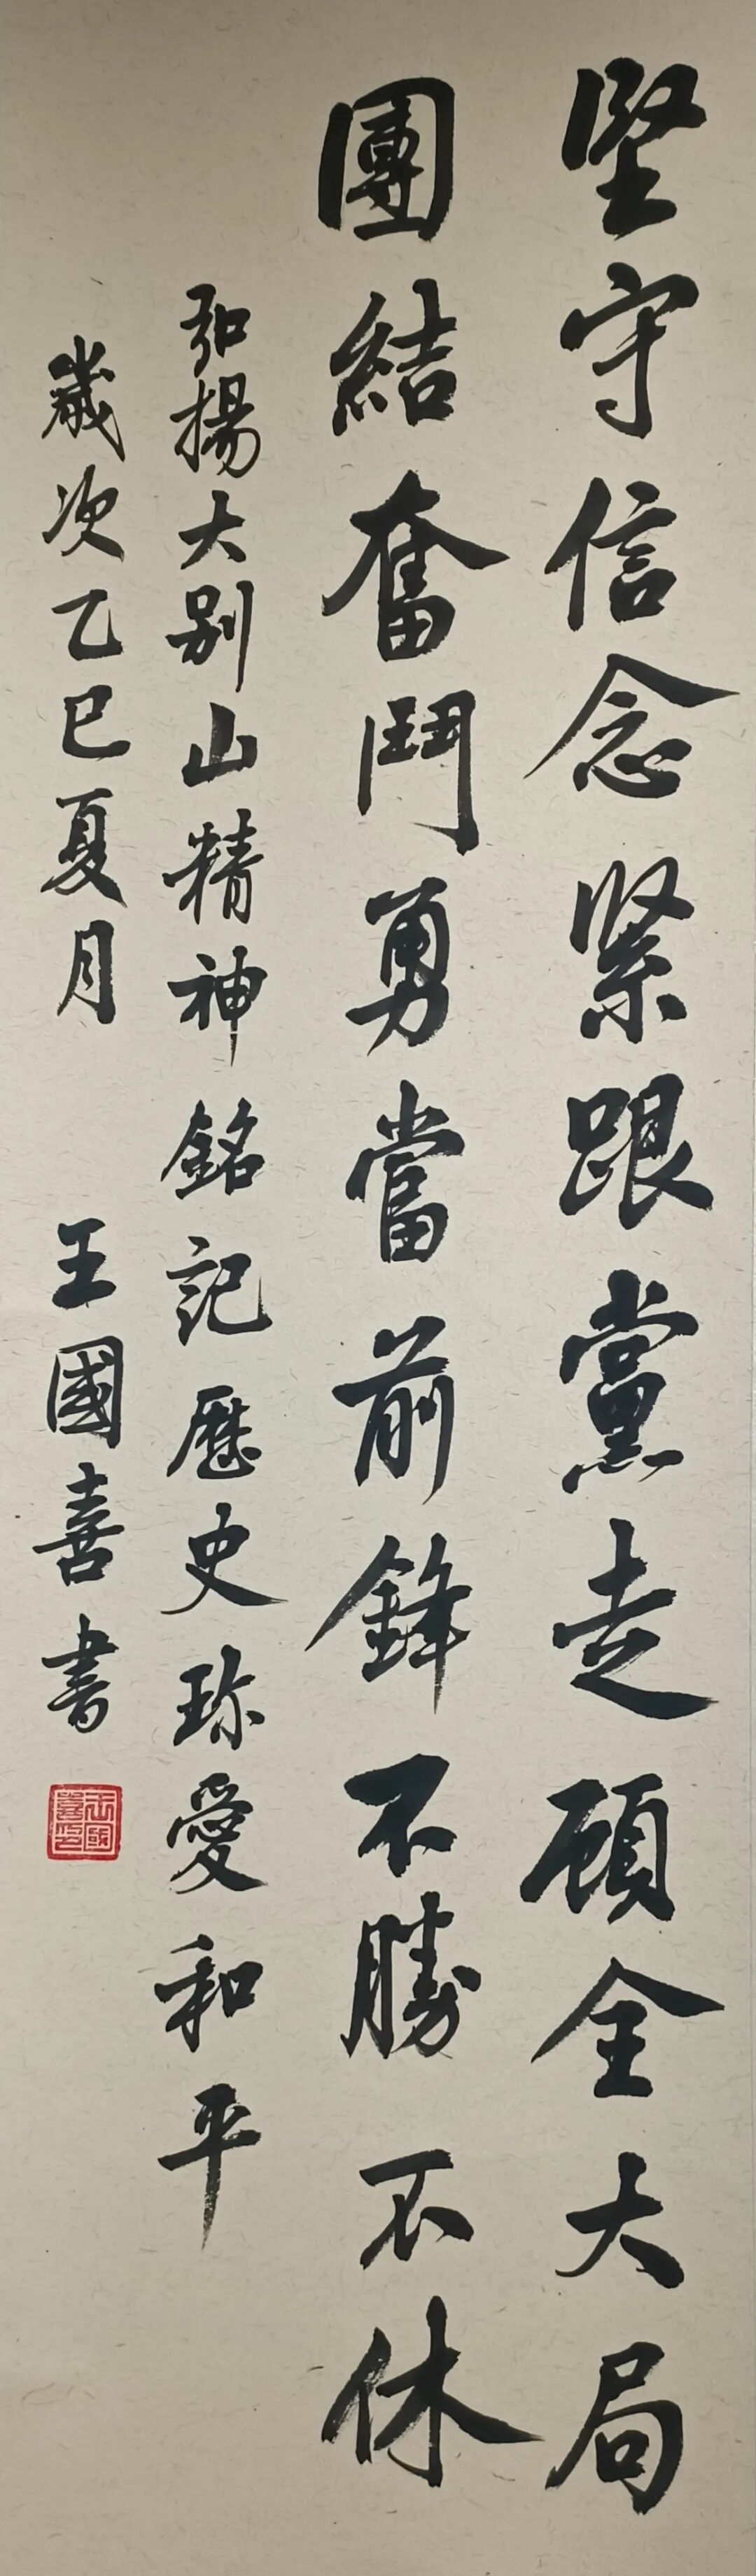 堅守信念緊跟黨走顧全大局
團結奮鬥勇當前鋒不勝不休
弘揚大别山精神銘記歷史珎愛和平
歲次乙巳夏月 王國喜書
王國喜印